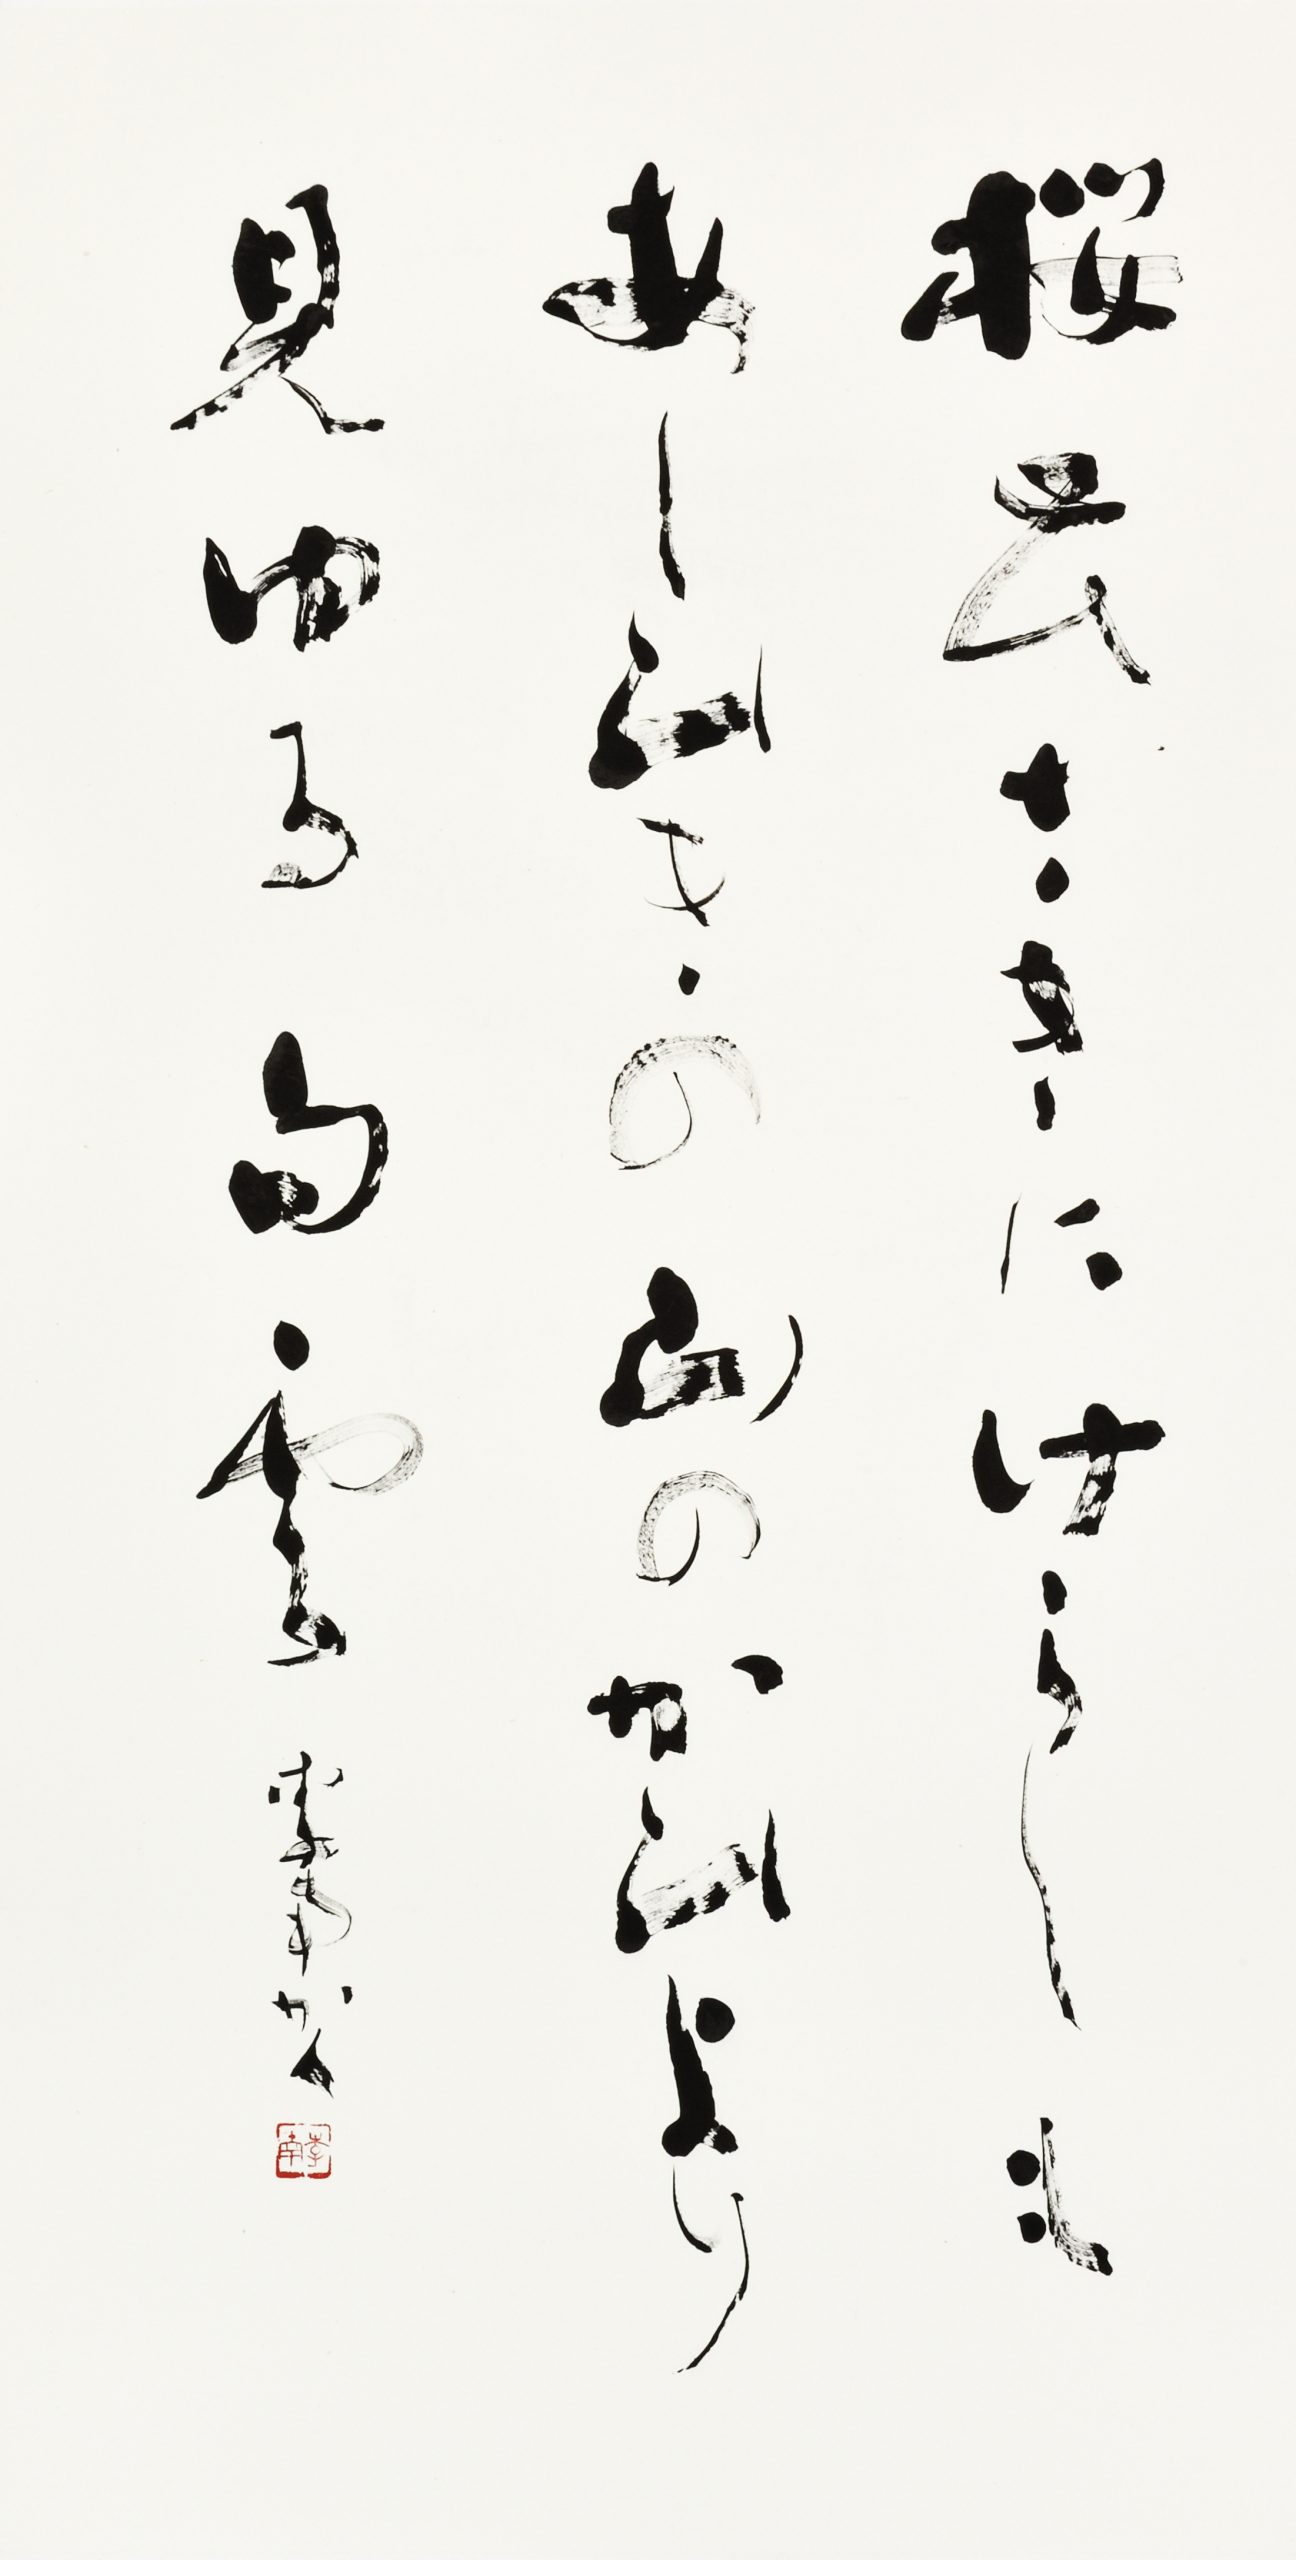 桜花さきにけらしも
あしひきの山のかひより
見ゆる白雲 かく